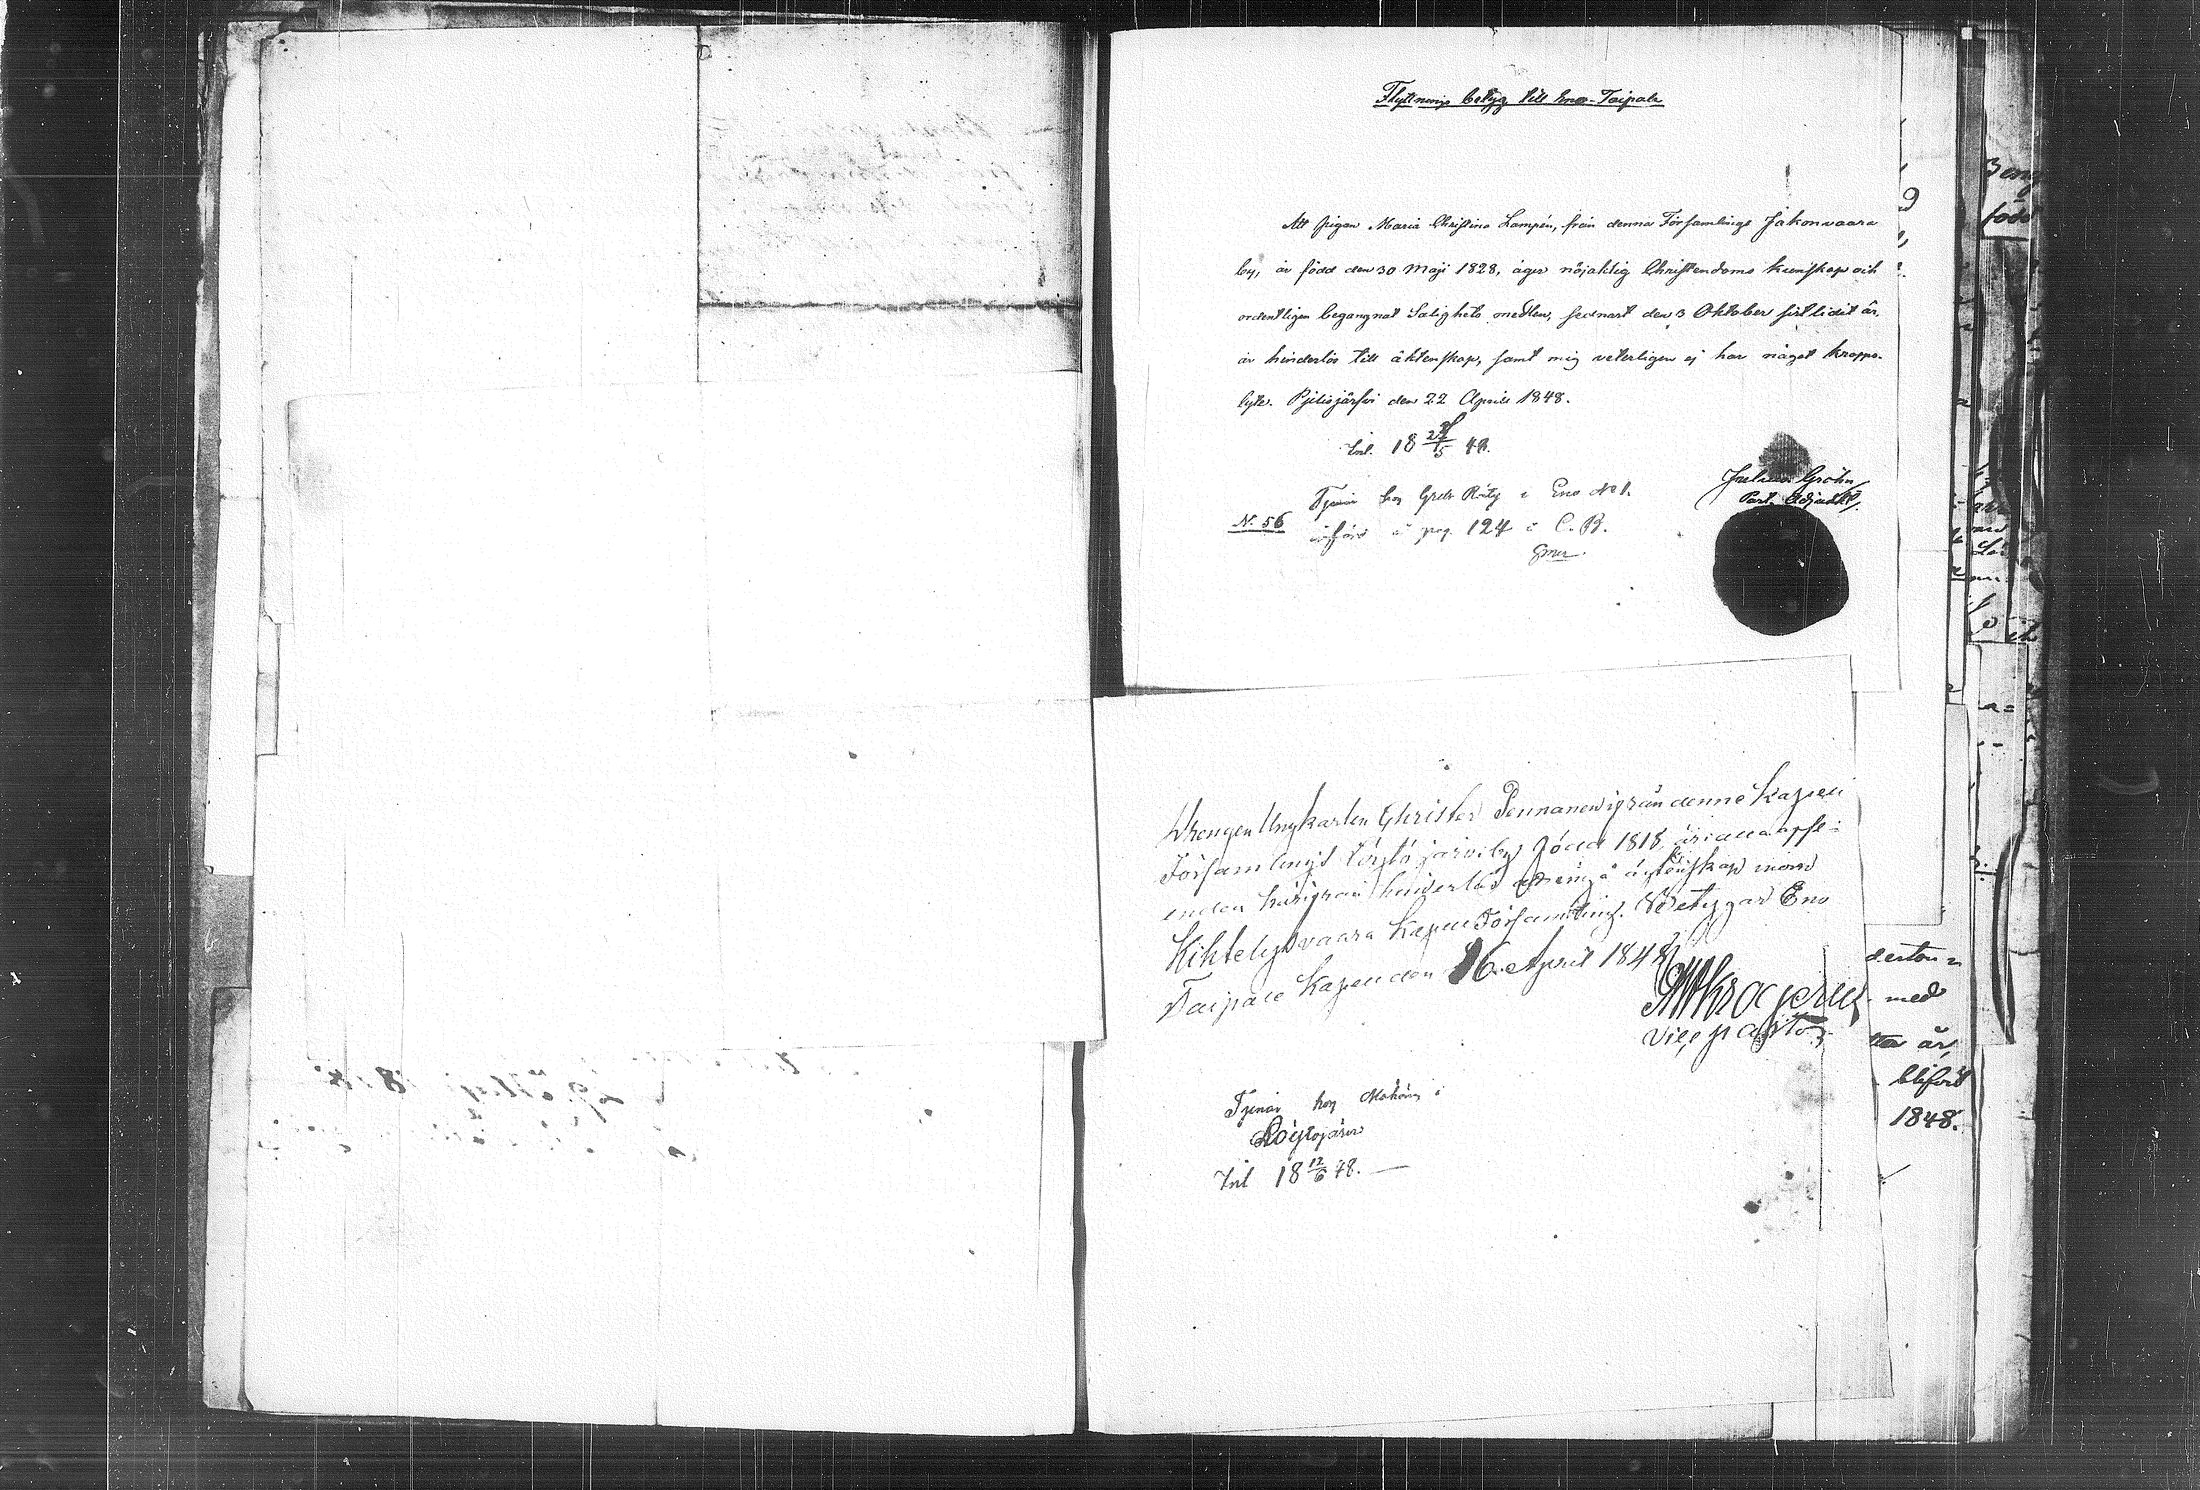 Flyttnings betyg till Eno-Taipale
Att pigan Maria Christina Lampén, från denna Församlings Jakonvaara
by, är född den 30 Maji 1828, äger nöjaktig Christendoms kunskap och
ordentligen begangnat Salighets medlen, sednast den 3 Oktober sistlidit år,
är hinderlös till äktenskap, samt mig veterligen ej har något kropps-
lyte. Pjelisjärfvi den 22 April 1848.
Inl. 18 5 48.
Julius Gröhn
Past. Adjunkt
Tjenar hos Greta Räty i Eno No 1.
No 56
införd å pag. 124 i C. B.
Drengen Ungkarlen Christer Pennanen ifrån denne Kapell
Församlings Löytöjärvi by född 1818, är i allo apse-
enden härifrån hinderlös att ingå äktenskap inom
Kihtelysvaara Kapell Församling. Betygar Eno
Taipale Kapell den 16 April 1848
Vice pastor
Tjenar hos Mohön i
Löytöjärvi
Inl 18 12/6 48.
med
är,
blifvit
1848.
född